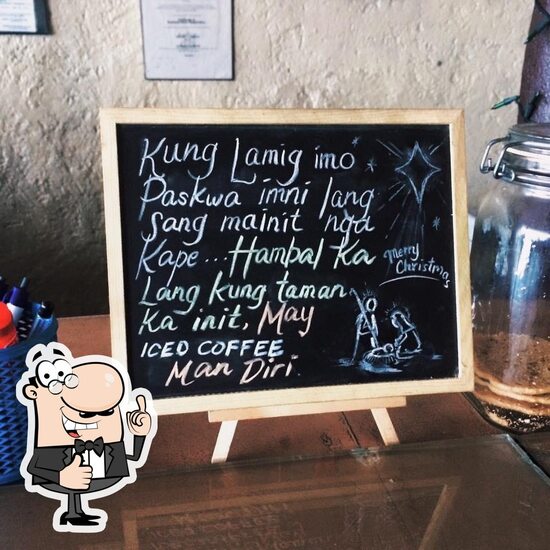 Kung Lamig imo
Paskwa imni lang
sang mainit nga
Kape... Hambal Ka
Lang kung taman
Ka init, May
ICED COFFEE
Man Diri.
Merry
Christmas